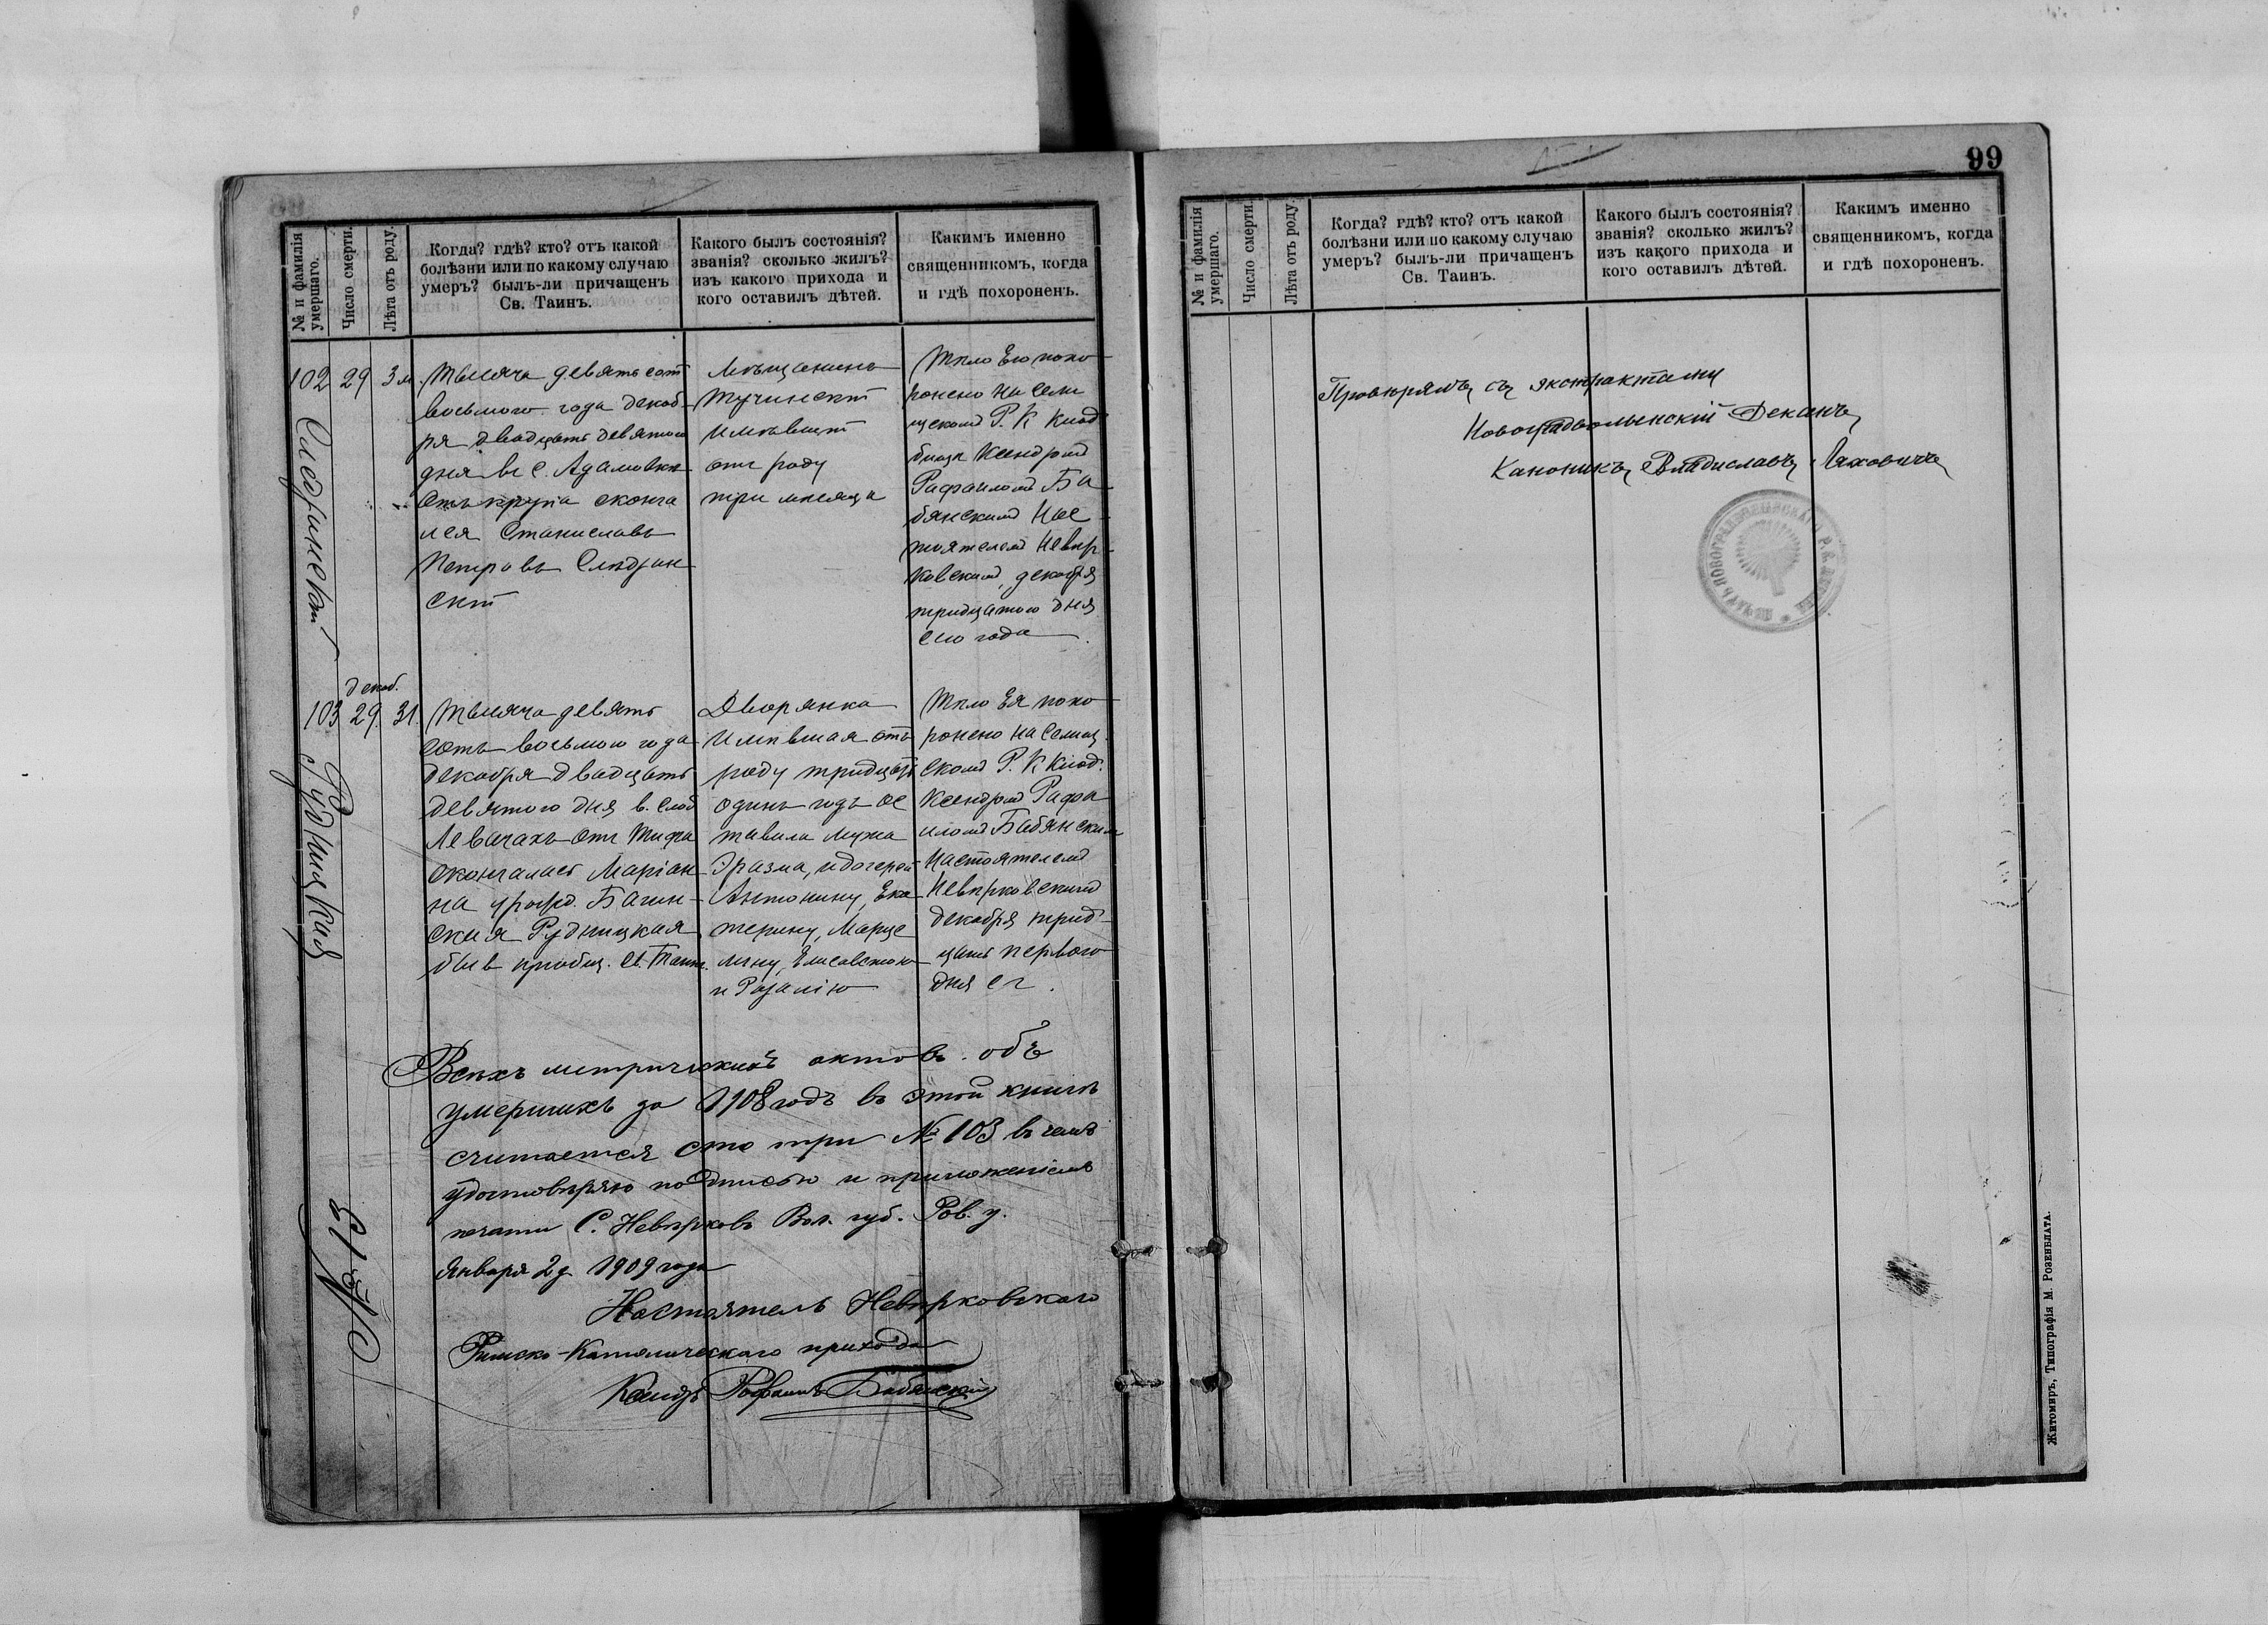 99
№ и фамилія умершаго.
Число смерти.
Лѣта отъ роду.
Когда? гдѣ? кто? отъ какой
болѣзни или по какому случаю
умеръ? былъ-ли причащенъ
Св. Таинъ.
Какого былъ состоянія?
званія? сколько жилъ?
изъ какого прихода и
кого оставилъ дѣтей.
Какимъ именно
священникомъ, когда
и гдѣ похороненъ.
102
29
3 м.
Тысяча девятьсот
восьмого года декаб-
ря двадцать девятого
дня в с. Адамовкѣ
отъ крупа сконча
лся Станиславъ
Петровъ
скій
Мѣщанинъ
имѣвшій
отъ роду
три мѣсяца
Тѣло Его похо
ронено на Сели
щском Р. К клад
бищѣ Ксендзомъ
Рафаиломъ Ба
бянскимъ Нас-
тоятелемъ Невѣр-
ковскимъ, декабря
тридцатого дня
сего года.
декаб.
103
29.
31.
Рудницкая
Тысяча девять
сотъ восьмого года
декабря двадцать
девятого дня в. слоб
Левачахъ отъ Тифа
скончалась Маріан
на урожд. Багин-
ская Рудницкая
быв приобщ. Св. Таин.
Дворянка
имѣвшая отъ
роду тридцать
одинъ годъ ос
тавила мужа
Эразма, и дочерей
Антонину, Ека
терину, Марце
лину, Елисавету
и Розалію
Тѣло Ея похо
ронено на Селищ
скомъ Р. К клад.
Ксендзомъ Рафа
иломъ Бабянским
Настоятелемъ
Невѣрковскимъ
декабря трид-
цать первого
дня с г.
Всѣхъ метрическихъ актовъ объ
умершихъ за 1908 годъ въ этой книгѣ
считается сто три № 103 въ чемъ
удостовѣряю подписью и приложеніемъ
печати С. Невѣрковъ Вол. губ. Ров. у.
Января 2 д 1909 года
Настоятель Невѣрковскаго
Римско-Католическаго прихода
Ксендзъ Рафаилъ Бабянскій
№ и фамилія умершаго.
Число смерти.
Лѣта отъ роду.
Когда? гдѣ? кто? отъ какой
болѣзни или по какому случаю
умеръ? былъ-ли причащенъ
Св. Таинъ.
Какого былъ состоянія?
званія? сколько жилъ?
изъ какого прихода и
кого оставилъ дѣтей.
Какимъ именно
священникомъ, когда
и гдѣ похороненъ.
Провѣрялъ съ экстрактами
Новоградволынскій Деканъ
Каноникъ Владиславъ Ляховичъ
Житомиръ, Типографія М. Розенблата.